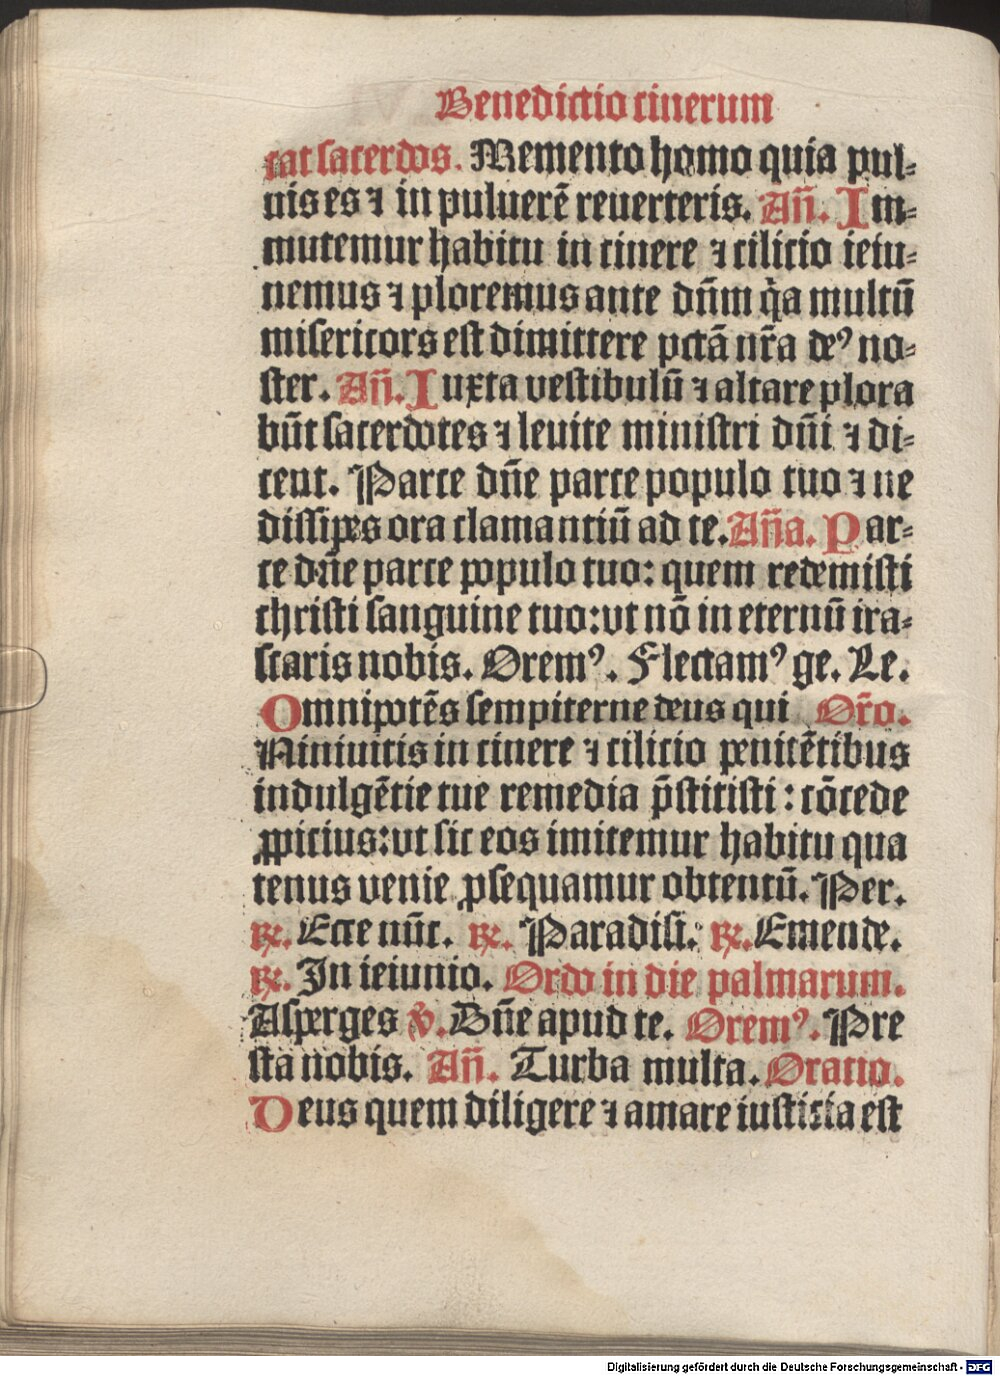 Benedictio cinerum
cat sacerdos. Memento homo quia pul⸗
uis es ⁊ in puluerē reuerteris. Añ. Im⸗
mutemur habitu in cinere ⁊ cilicio ieiu⸗
nemus ⁊ ploremus ante dñm q̇a multū
misericors est dimittere pctā nr̄a deꝰ no⸗
ster. Añ. Iuxta vestibulū ⁊ altare plora
būt sacerdotes ⁊ leuite ministri dñi ⁊ di⸗
cent. Parce dñe parce populo tuo ⁊ ne
dissipes ora clamantiū ad te. Aña. Par⸗
ce dñe parce populo tuo: quem redemisti
christi sanguine tuo: vt nō in eternū ira⸗
scaris nobis. Oremꝰ. Flectamꝰ ge. Le.
Omnipotēs sempiterne deus qui Or̄o.
Niniuitis in cinere ⁊ cilicio penitētibus
indulgētie tue remedia p̄stitisti: cōcede
ꝓpicius: vt sic eos imitemur habitu qua
tenus venie ꝓsequamur obtentū. Per.
℞. Ecce nūc. ℞. Paradisi. ℞. Emende.
℞. In ieiunio. Ordo in die palmarum.
Asperges ꝟ. Dñe apud te. Oremꝰ. Pre
sta nobis. Añ. Turba multa. Oratio.
Deus quem diligere ⁊ amare iusticia est
Digitalisierung gefördert durch die Deutsche Forschungsgemeinschaft - DFG